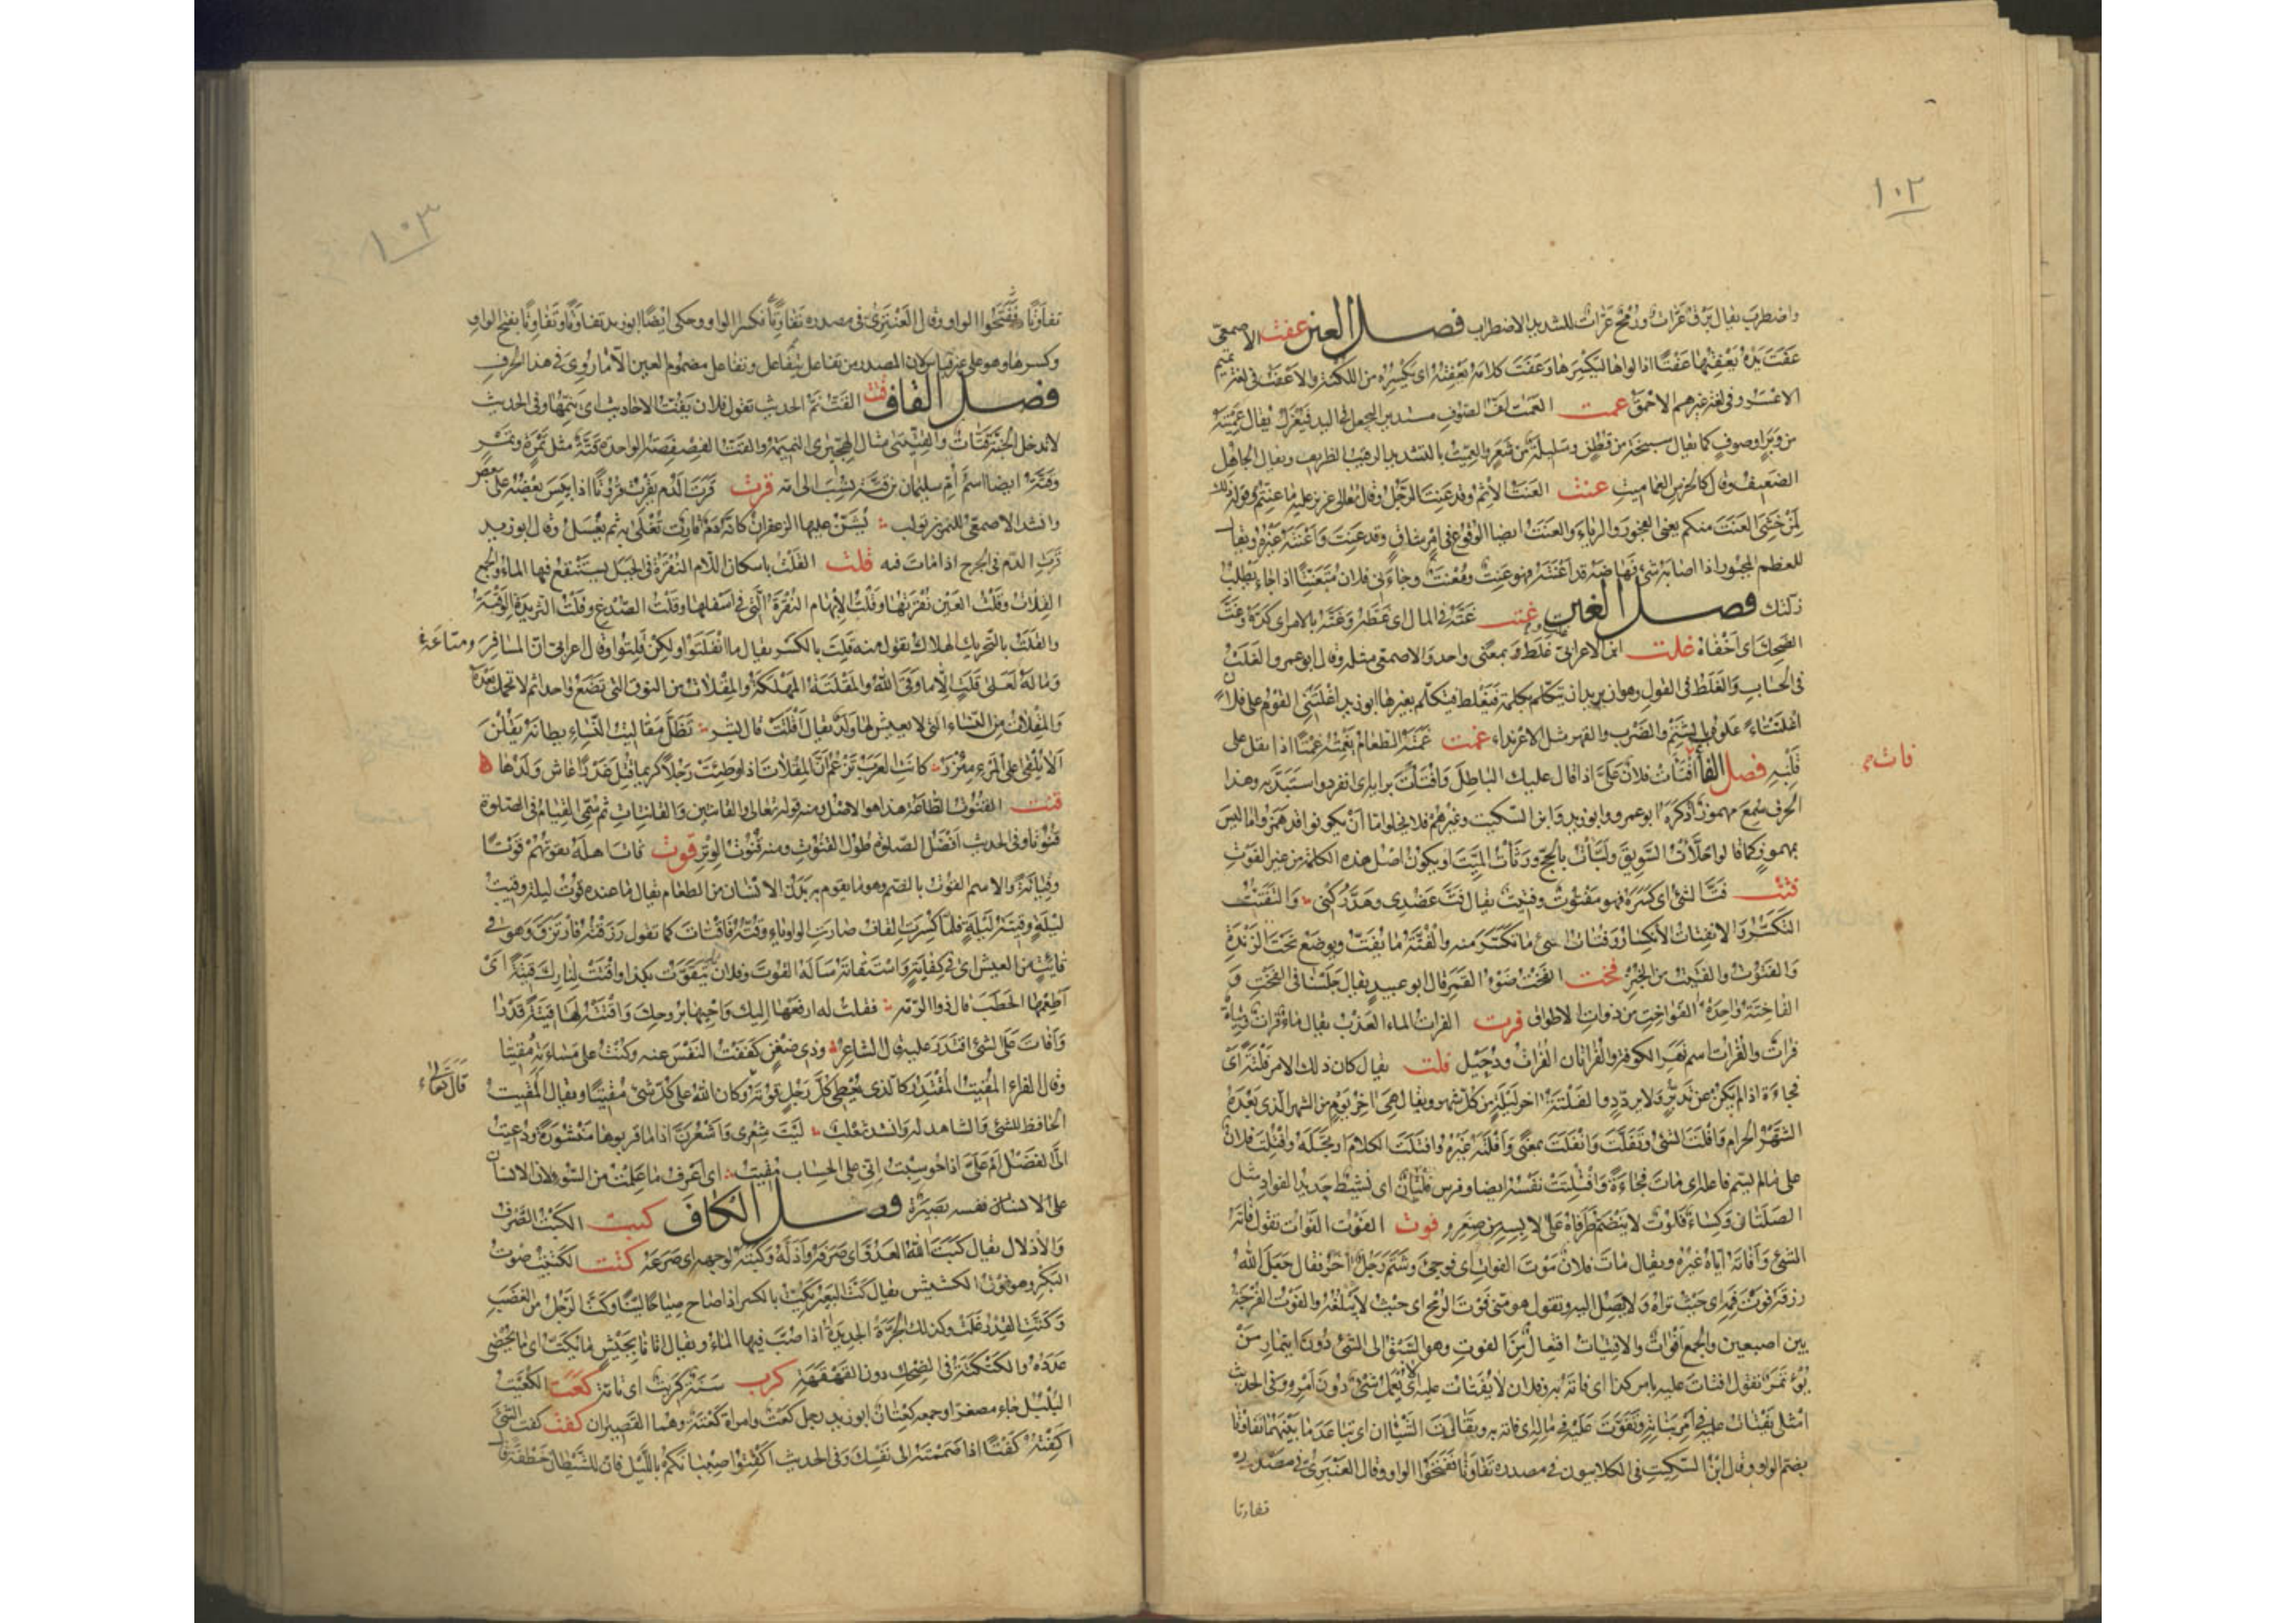 ١٠٢
واضطرب يقال برق عرّات ورمح عرّات للشديد الاضطراب فصل العين عفت الاصمعى
عَفَتَ يَدَهُ يَعْفِتُهَا عَفْتًا اذا لواها ليكسرها وعَفَتَ كلامه يَعْفِتُهُ اى يكسِرُه من اللكنة والاَعْفَتُ فى لغة تميم
الاعسر وفى لغة غيرهم الاحمق عمت العَمْتُ لفّ الصّوف مستديرا ليجعل فى اليد فيُغزل يقال عَمِيتَة
من وَبَر او صوف كما يقال سبيخة من قطن وسليلة من شعر والعِمِّيتُ بالتشديد الرقيب الظريف ويقال الجاهل
الضعيف وقال كالخرس العماميت عنت العَنَتُ الاثم وقد عَنِتَ الرّجل وقال تعالى عزيز عليه ما عنتم وقوله ذلك
لمن خَشِىَ العَنَتَ منكم يعنى الفجور والزناء والعَنَتُ ايضا الوقوع فى امر شاق وقد عَنِتَ وَاَعْنَتَه غيره ويقال
للعظم المجبور اذا اصابه شئ فهاضه قد اَعْنَتَه فهو عَنِتٌ ومُعْنَتٌ وجاءنى فلان مُتَعَنِّتًا اذا جاء يطلب
زلتك فصل الغين غتت غَتَّه فى الماء اى غَطَّه وَغَتَّه بالامر اى كدّه وغَتَّ
الضحك اى اَخْفَاهُ غلت ابن الاعرابىّ غَلِطَ وغلت بمعنًى واحد والاصمعى مثله وقال ابو عمرو الغَلَتُ
فى الحساب والغَلَطُ فى القول وهو ان يريد ان يتكلم بكلمة فيغلط فيتكلّم بغيرها ابو زيد اغْلَنْتَى القوم على فلان
اغْلِنْتَاءً عَلَوْهُ بالشتم والضرب والقهر مثل الاغرنداء غمت غَمَتَه الطعام يَغْمِتُه غَمْتًا اذا ثقل على
قلبه فصل الفاء افْتَأَتَ فلان عَلَىَّ اذا قال عليك الباطل وَافْتَأَتَ برايه اى انفرد واستبدّ به وهذا
فات
الحرف سُمِعَ مهموزًا ذكره ابو عمرو وابو زيد وابن السّكّيت وغيرهم فلا يخلو اما اَنْ يكونوا قد همزوا ما ليس
بمهموز كما قالوا حَلَّأْتُ السَّوِيقَ ولَبَّأْتُ بالحجّ ورَثَأْتُ الميّت او يكون اصل هذه الكلمة من غير الفوت
فتت فَتَّ الشئ اى كَسَرَهُ فهو مَفْتُوتٌ وفَتِيتٌ يقال فَتَّ عَضُدِى وهَدَّ رُكْنِى والتَفَتُّتُ
التكَسُّر والانفتات الانكسار وفُتَاتُ الشئ ما تكسّر منه والفُتَّةُ ما يُفَتّ ويوضع تحت الزَنْدَةِ
والفَتُوتُ والفَتِيتُ من الخبز فخت الفَخْتُ ضَوْءُ القَمَر قال ابو عبيد يقال جَلَسْنا فى الفَخْتِ و
الفاخِتَة واحدة الفَوَاخِتِ من ذوات الاطواق فرت الفرات الماء العَذْب يقال ماءٌ فُرَاتٌ ومياهٌ
فراتٌ والفُرَات اسم نَهَرِ الكوفة والفُرَاتان الفُرَاتُ ودُجَيْل فلت يقال كان ذلك الامر فَلْتَةً اى
فجاءة اذا لم يكن عن تدبّر ولا تردّد والفَلْتَةُ اخر ليلة من كلّ شهر ويقال هى اخر يوم من الشهر الذى بَعْدَهُ
الشَّهْرُ الحرام واَفْلَتَ الشئ وتَفَلَّتَ وانْفَلَتَ بمعنًى واَفْلَتَهُ غيره وافْتَلَتَ الكلام ارتجله وافْتُلِتَ فلان
على ما لم يسم فاعله اى مات فجاءةً وافْتُلِتَتْ نفسُه ايضا وفرس فَلَتَانٌ اى نشيط حديد الفواد مثل
الصَلَتَان وكساء فَلُوتٌ لا يَنْضَمّ طرفاه على لابسه من صغره فوت الفَوْتُ الفَوَات تقول فاتَهُ
الشئ وَاَفَاتَهُ ايّاه غيره ويقال مات فلان مَوْتَ الفَوَاتِ اى فوجئ وشتم رجل اخر فقال جعل الله
رزقه فَوْتَ فَمِه اى حيث تراه ولا يصل اليه وتقول هو منى فَوْتَ الرمح اى حيث لا يَبْلُغُه والفَوْتُ الفرجة
بين اصبعين والجمع اَفْوَاتٌ والافتيات افتعال مِنَ الفوت وهو السَّبْق الى الشئ دون ايتمار مَنْ
يُؤْتَمَرُ تقول افتات عليه بامر كذا اى فاته به وفلان لا يُفْتَات عليه اى لا يُعْمَل شئ دون امره وفى الحديث
امثلى يُفْتات عليه فى امر بناته وتَفَوَّتَ عَلَيْهِ فى ماله اى فاته به ويقال تَفَاوَتَ الشيئان اى تباعد ما بينهما تفاوُتًا
بضم الواو وقال ابن السكيت فى الكلابيون فى مصدره تفاوَتًا فَفَتَحُوا الواو وقال العنبرىّ فى مصدره
تفاوتا
١٠٣
تفاوَتًا فَفَتَحُوا الواو وقال العَنْبَرِىّ فى مصدره تفاوِتًا بكسر الواو وحكى ايضًا ابو زيد تفاوَتًا وتَفَاوِتًا بفتح الواو
وكسرها وهو على غير قياس لان المصدر من تفاعل يتفاعل وتفاعل مضموم العين الّا ما رُوِىَ فى هذا الحرف
فصل القاف قتت القَتُّ نَمّ الحديث تقول فلان يَقُتّ الاحاديث اى ينمّها وفى الحديث
لا يدخل الجنة قَتَّاتٌ والقِتِّيتَى مثال الهِجِّيرَى النميمة والقَتّ الفِصْفِصَة الواحدة قَتَّةٌ مثل تَمْرَةٍ وتَمْرٍ
وقَتَّةُ ايضا اسم اُمّ سليمان بن قتّة نسب الى امه قرت قَرَتَ الدّم يَقْرُتُ قُرُوتًا اذا يَبِسَ بَعْضُه على بعض
وانشد الاصمعى للنمر بن تولب يُشَنُّ عليها الزعفران كانّه دَمٌ قارِتٌ تُعْلَى به ثم يُغْسَلُ وقال ابو زيد
قرت الدم فى الجرح اذا مات فيه قلت القَلْتُ باسكان اللّام النُقْرَة فى الجَبَل يستنقع فيها الماء والجمع
القِلَاتُ وقَلْتُ العَيْن نُقْرَتُها وقَلْتُ الإبهام النُقْرَة الّتى فى اسفلها وقَلْتُ الصّدغ وقَلْتُ الثريدة الوَقْبَةُ
والقَلَتُ بالتحريك الهلاك تقول منه قَلِتَ بالكسر يقال ما انْفَلَتُوا ولكن قَلِتُوا وقال اعرابى انّ المسافر ومتاعَهُ
وماله لَعَلَى قَلَتٍ الّا ما وَقَى اللّهُ والمَقْلَتَة المَهْلَكَة والمِقْلَاتُ من النوق التى تضع واحدا ثم لا تحمل بعده
والمِقْلَاتُ من النساء الّتى لا يعيش لها ولدٌ يقال اَقْلَتَتْ قال بشر تَظَلُّ مَقَالِيتُ النِّسَاءِ يطانَه يَقُلْنَ
اَلَا يُلْقَى على المَرْءِ مِئْزَرُ كانت العرب تَزْعُمُ انّ المِقْلَات اذا وطِئَتْ رجلًا كريما قُتِلَ غَدْرًا عاش ولدها
قنت القُنُوت الطاعة هذا هو الاصل ومنه قوله تعالى والقانتين والقانتات ثم سُمِّىَ القيام فى الصلوة
قُنُوتًا وفى الحديث اَفْضَلُ الصلوة طول القُنُوت ومنه قُنُوتُ الوِتْر قوت قاتَ اهله يقوتهم قَوْتًا
وقِيَاتَةً والاسم القُوتُ بالضّم وهو ما يقوم به بدن الانسان من الطعام يقال ما عنده قُوتُ ليلة وقِيتُ
لَيْلَةٍ وقِيتَةُ لَيْلَةٍ فلمّا كُسِرَتِ القاف صارت الواو ياء وقُتُّهُ فَاقْتَاتَ كما تقول رَزَقْتُه فارتزق وهو فى
قائتٍ من العيش اى فى كِفَايَةٍ واستقاته سَاَلَهُ القُوتَ وفلان يتَقَوَّت بكذا واقْتَتْ لنارك قيتَةً اى
اَطْعِمْها الحَطَبَ قال ذو الرّمّة فقلت له ارفعها اليك واَحْيِها بروحك واقْتَتْهُ لها قيتَةً قدرا
واَقاتَ على الشئ اقتدر عليه قال الشاعر وذى ضِغْنٍ كَفَفْتُ النَفْسَ عنه وكُنْتُ على مَسَاءَتِهِ مُقِيتَا
وقال الفراء المُقِيتُ المُقْتَدِرُ كالذى يُعْطِى كُلَّ رَجُلٍ قُوتَهُ وكان اللهُ على كل شئ مُقِيتًا ويقال المُقِيتُ
قال تعالى
الحافظ للشئ والشاهد له وانشد ثعلب لَيْتَ شِعْرِى واَشْعُرَنَّ اذا ما قرّبوها مَنْشُورَةً ودُعِيتُ
اَلِىَ الفَضْلُ اَمْ عَلَىَّ اذا حُوسِبْتُ اِنّى على الحساب مُقِيتُ اى اعرف ما عملت من السّوء لان الانسان
على الانسان نفسه بَصِيرَة فصل الكاف كبت الكَبْتُ الصَرف
والاذلال يقال كَبَتَ اللّه العَدُوّ اى صَرَفَه واَذَلَّهُ وكَبَتَه لوجهه اى صَرَعَهُ كتت الكَتِيتُ صَوْتُ
البكر وهو فوق الكشيش يقال كَتَّ البَعِيرُ يَكِتُّ بالكسر اذا صاح صياحًا ليّنًا وكَتَّ الرّجل من الغَضَبِ
وكَتَّتِ القِدْرُ غَلَتْ وكذلك الجَرَّةُ الجديدةُ اذا صُبَّ فيها الماء ويقال اتانا بِجَيْشٍ ما يُكَتُّ اى ما يُحْصَى
عدده والكَتْكَتَة فى الضحك دون القَهْقَهَة كرت سَنَة كَرِيتٌ اى تامّة كعت الكُعَيْتُ
البُلْبُل جاء مصغرًا وجمعه كِعْتَانٌ ابو زيد رجل كَعْتٌ وامراة كَعْتَة وهما القصيران كفت كَفَتّ الشئ
اَكْفِتُه كَفْتًا اذا ضممته الى نفسك وفى الحديث اكْفِتُوا صِبْيَانَكم باللّيل فان للشيطان خَطْفَة